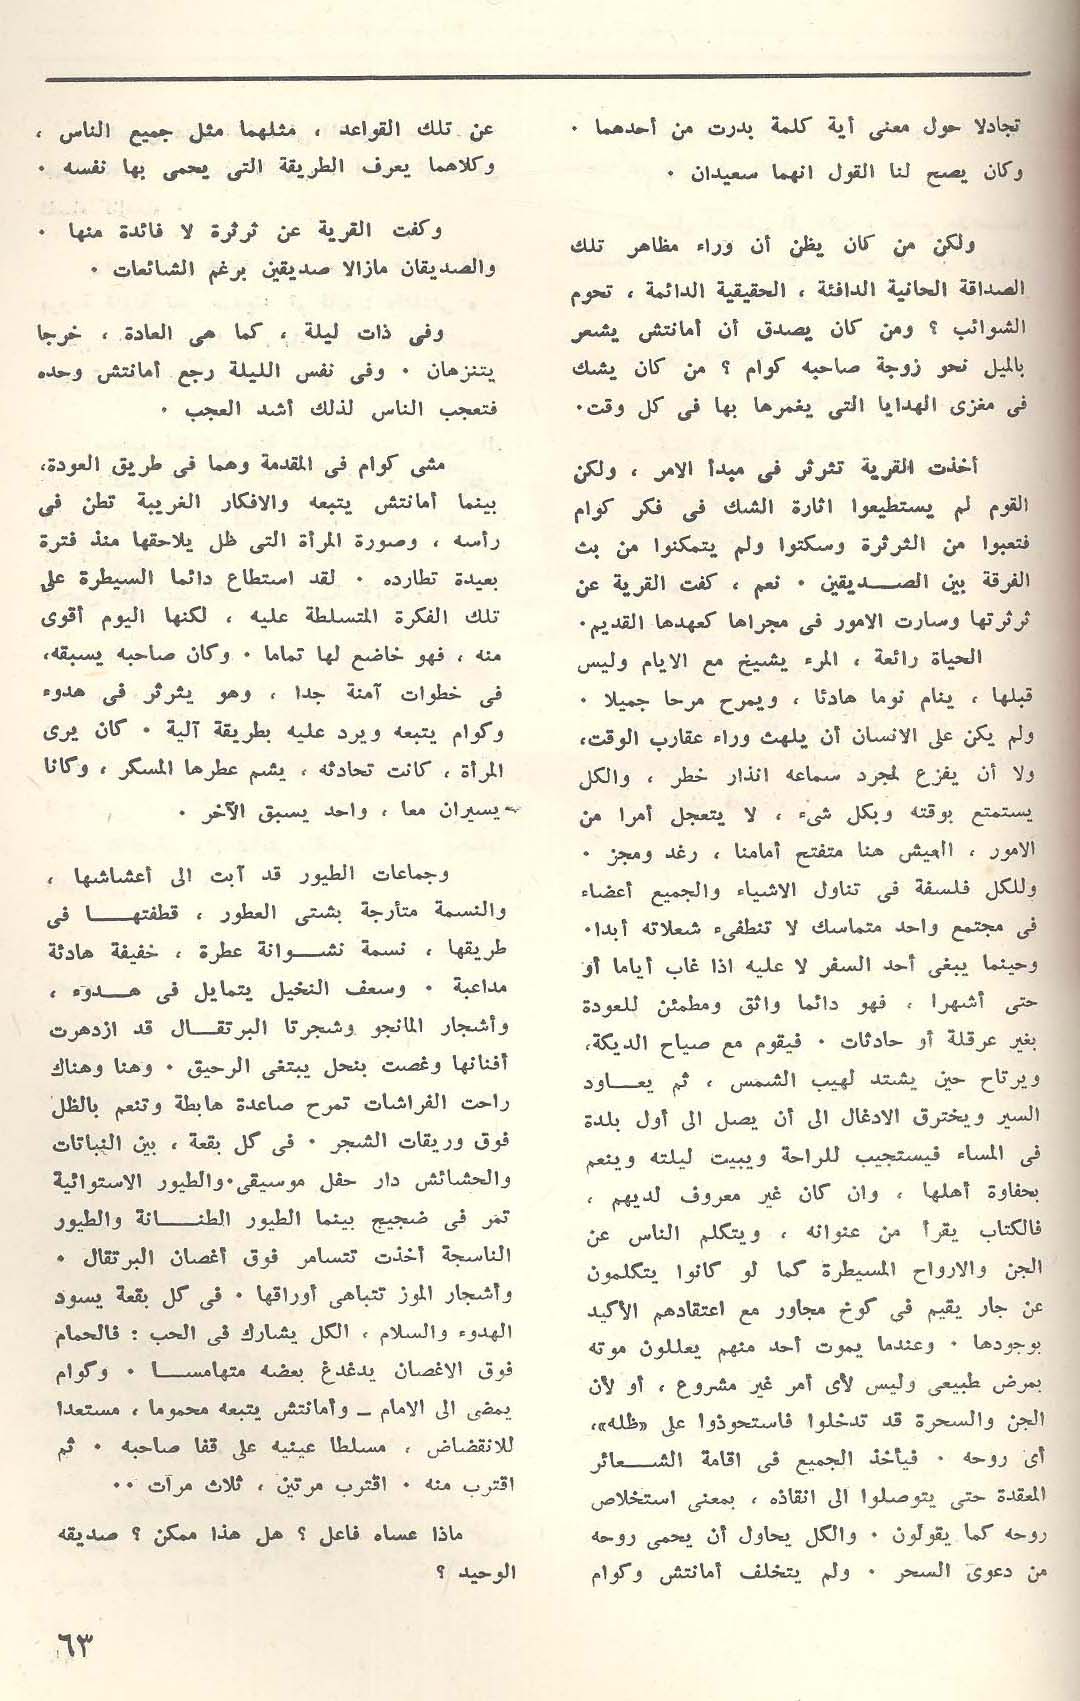 تجادلا حول معنى أية كلمة بدرت من أحدهما ٠
وكان يصح لنا القول انهما سعيدان ٠
ولكن من كان يظن أن وراء مظاهر تلك
الصداقة الحانية الدافئة ، الحقيقية الدائمة ، تحوم
الشوائب ؟ ومن كان يصدق أن أمانتش يشعر
بالميل نحو زوجة صاحبه كوام ؟ من كان يشك
فى مغزى الهدايا التى يغمرها بها فى كل وقت٠
أخذت القرية تثرثر فى مبدأ الامر ، ولكن
القوم لم يستطيعوا اثارة الشك فى فكر كوام
فتعبوا من الثرثرة وسكتوا ولم يتمكنوا من بث
الفرقة بين الصــديقين ٠ نعم ، كفت القرية عن
ثرثرتها وسارت الامور فى مجراها كعهدها القديم٠
الحياة رائعة ، المرء يشيخ مع الايام وليس
قبلها ، ينام نوما هادئا ، ويمرح مرحا جميلا ٠
ولم يكن على الانسان أن يلهث وراء عقارب الوقت،
ولا أن يفزع لمجرد سماعه انذار خطر ، والكل
يستمتع بوقته وبكل شىء ، لا يتعجل أمرا من
الامور ، العيش هنا متفتح أمامنا ، رغد ومجز ٠
وللكل فلسفة فى تناول الاشياء والجميع أعضاء
فى مجتمع واحد متماسك لا تنطفىء شعلاته أبدا٠
وحينما يبغى أحد السفر لا عليه اذا غاب أياما أو
حتى أشهرا ، فهو دائما واثق ومطمئن للعودة
بغير عرقلة أو حادثات ٠ فيقوم مع صياح الديكة،
ويرتاح حين يشتد لهيب الشمس ، ثم يعــاود
السير ويخترق الادغال الى أن يصل الى أول بلدة
فى المساء فيستجيب للراحة ويبيت ليلته وينعم
بحفاوة أهلها ، وان كان غير معروف لديهم ،
فالكتاب يقرأ من عنوانه ، ويتكلم الناس عن
الجن والارواح المسيطرة كما لو كانوا يتكلمون
عن جار يقيم فى كوخ مجاور مع اعتقادهم الأكيد
بوجودها ٠ وعندما يموت أحد منهم يعللون موته
بمرض طبيعى وليس لأى أمر غير مشروع ، أو لأن
الجن والسحرة قد تدخلوا فاستحوذوا على «ظله»،
أى روحه ٠ فيأخذ الجميع فى اقامة الشــعائر
المعقدة حتى يتوصلوا الى انقاذه ، بمعنى استخلاص
روحه كما يقولون ٠ والكل يحاول أن يحمى روحه
من دعوى السحر ٠ ولم يتخلف أمانتش وكوام
عن تلك القواعد ، مثلهما مثل جميع الناس ،
وكلاهما يعرف الطريقة التى يحمى بها نفسه ٠
وكفت القرية عن ثرثرة لا فائدة منها ٠
والصديقان مازالا صديقين برغم الشائعات ٠
وفى ذات ليلة ، كما هى العادة ، خرجا
يتنزهان ٠ وفى نفس الليلة رجع أمانتش وحده
فتعجب الناس لذلك أشد العجب ٠
مشى كوام فى المقدمة وهما فى طريق العودة،
بينما أمانتش يتبعه والافكار الغريبة تطن فى
رأسه ، وصورة المرأة التى ظل يلاحقها منذ فترة
بعيدة تطارده ٠ لقد استطاع دائما السيطرة على
تلك الفكرة المتسلطة عليه ، لكنها اليوم أقوى
منه ، فهو خاضع لها تماما ٠ وكان صاحبه يسبقه،
فى خطوات آمنة جدا ، وهو يثرثر فى هدوء
وكوام يتبعه ويرد عليه بطريقة آلية ٠ كان يرى
المرأة ، كانت تحادثه ، يشم عطرها المسكر ، وكانا
يسيران معا ، واحد يسبق الآخر ٠
وجماعات الطيور قد آبت الى أعشاشها ،
والنسمة متأرجة بشتى العطور ، قطفتهــا فى
طريقها ، نسمة نشــوانة عطرة ، خفيفة هادئة
مداعبة ٠ وسعف النخيل يتمايل فى هــدوء ،
وأشجار المانجو وشجرتا البرتقــال قد ازدهرت
أفنانها وغصت بنحل يبتغى الرحيق ٠ وهنا وهناك
راحت الفراشات تمرح صاعدة هابطة وتنعم بالظل
فوق وريقات الشجر ٠ فى كل بقعة ، بين النباتات
والحشائش دار حفل موسيقى٠ والطيور الاستوائية
تمر فى ضجيج بينما الطيور الطنــانة والطيور
الناسجة أخذت تتسامر فوق أغصان البرتقال ٠
وأشجار الموز تتباهى أوراقها ٠ فى كل بقعة يسود
الهدوء والسلام ، الكل يشارك فى الحب : فالحمام
فوق الاغصان يدغدغ بعضه متهامســا ٠ وكوام
يمضى الى الامام ــ وأمانتش يتبعه محموما ، مستعدا
للانقضاض ، مسلطا عينيه على قفا صاحبه ٠ ثم
اقترب منه ٠ اقترب مرتين ، ثلاث مرات ٠٠
ماذا عساه فاعل ؟ هل هذا ممكن ؟ صديقه
الوحيد ؟
٦٣